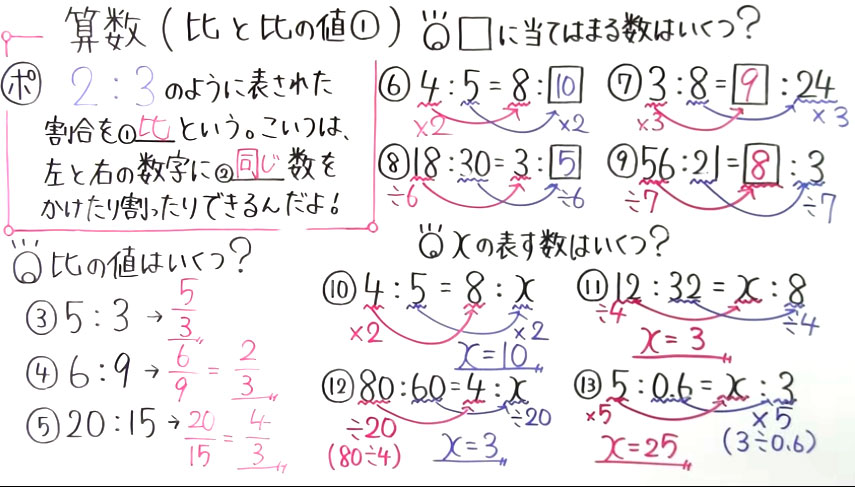 算数(比と比の値①)
ポ 2:3のように表された
割合を①比という。こいつは、
左と右の数字に②同じ数を
かけたり割ったりできるんだよ!
比の値はいくつ?
③5:3→5/3
④6:9→6/9=2/3
⑤20:15→20/15=4/3
□に当てはまる数はいくつ?
⑥4:5=8:10
×2 ×2
⑦3:8=9:24
×3 ×3
⑧18:30=3:5
÷6 ÷6
⑨56:21=8:3
÷7 ÷7
xの表す数はいくつ?
⑩4:5=8:x
×2 ×2
x=10
⑪12:32=x:8
÷4 ÷4
x=3
⑫80:60=4:x
÷20 ÷20
(80÷4) x=3
⑬5:0.6=x:3
×5 ×5
x=25 (3÷0.6)